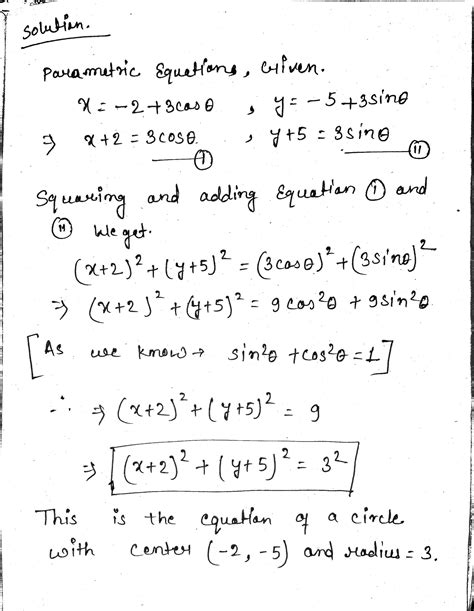 Solution.
Parametric Equations, Given.
x = -2+3cosθ , y = -5+3sinθ
⇒ x+2 = 3cosθ , y+5 = 3sinθ
(I) (II)
Squaring and adding Equation (I) and
(II) We get.
(x+2)² + (y+5)² = (3cosθ)² + (3sinθ)²
⇒ (x+2)² + (y+5)² = 9cos²θ + 9sin²θ
[As we know → sin²θ + cos²θ = 1]
∴ ⇒ (x+2)² + (y+5)² = 9
⇒ (x+2)² + (y+5)² = 3²
This is the equation of a circle
with center (-2, -5) and radius = 3.